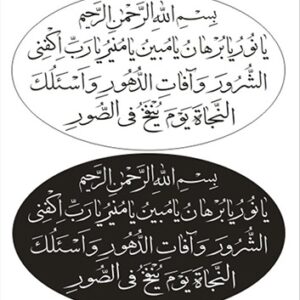 بِسْمِ اللهِ الرَّحْمٰنِ الرَّحِيمِ
يَا نُورُ يَا بُرْهَانُ يَا مُبِينُ يَا مُنِيرُ يَا رَبِّ اكْفِنِى
الشُّرُورَ وَ آفَاتِ الدُّهُورِ وَ اَسْئَلُكَ
النَّجَاةَ يَوْمَ يُنْفَخُ فِى الصُّورِ
بِسْمِ اللهِ الرَّحْمٰنِ الرَّحِيمِ
يَا نُورُ يَا بُرْهَانُ يَا مُبِينُ يَا مُنِيرُ يَا رَبِّ اكْفِنِى
الشُّرُورَ وَ آفَاتِ الدُّهُورِ وَ اَسْئَلُكَ
النَّجَاةَ يَوْمَ يُنْفَخُ فِى الصُّورِ